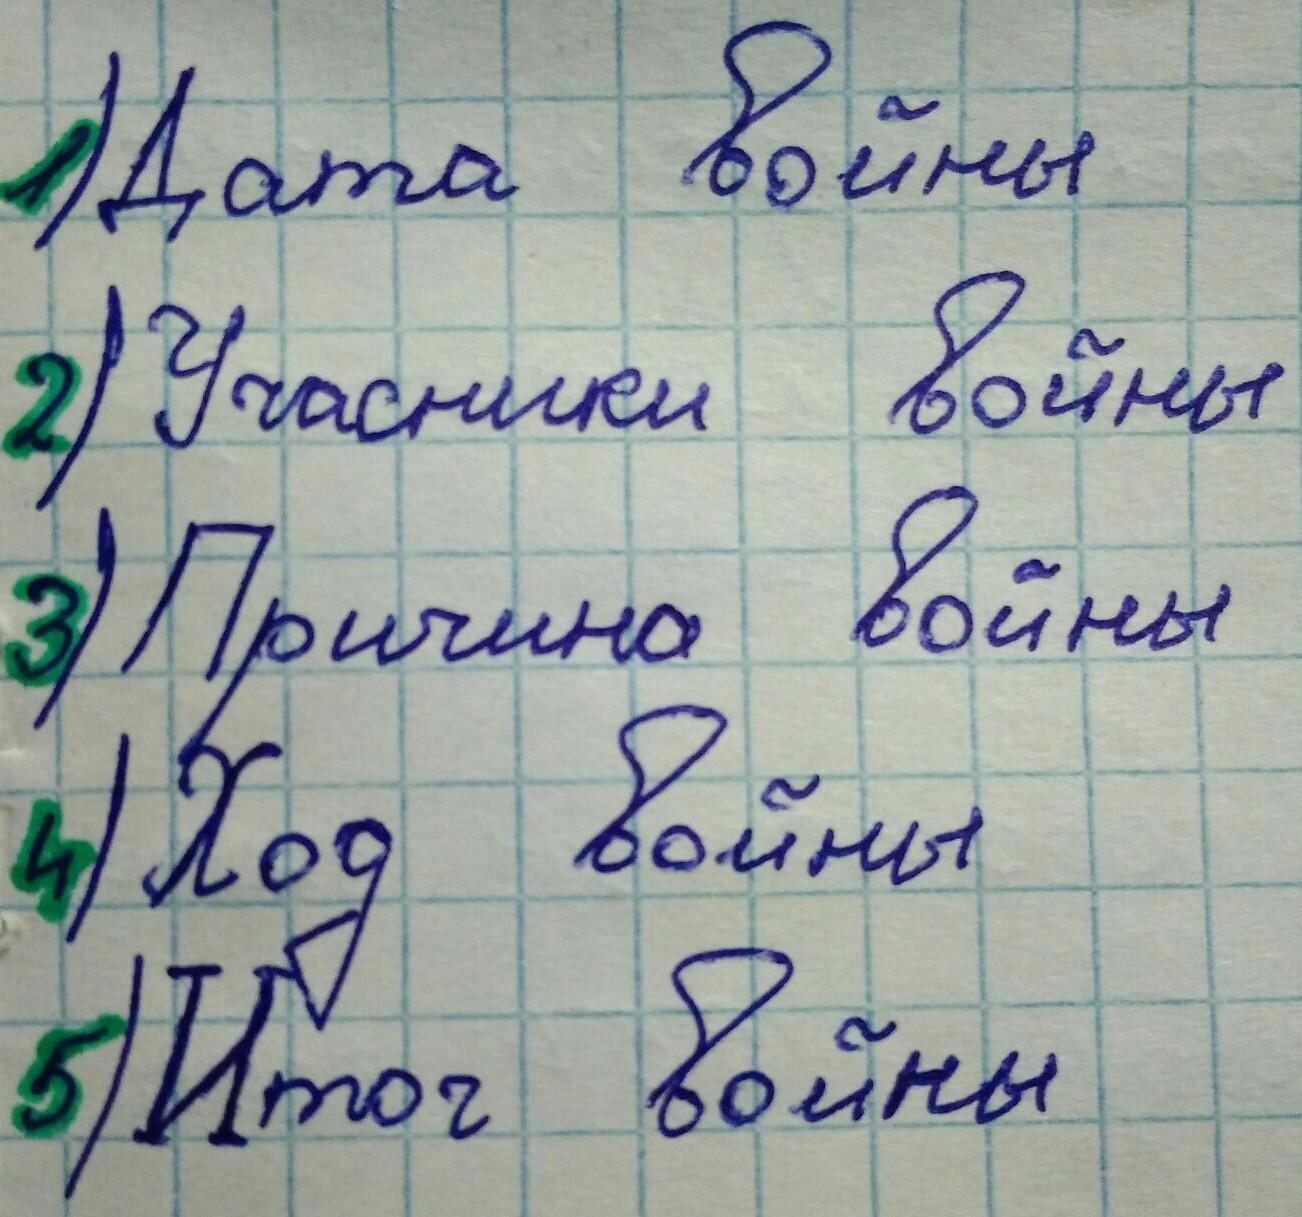 1) Дата войны
2) Учасники войны
3) Причина войны
4) Ход войны
5) Итог войны